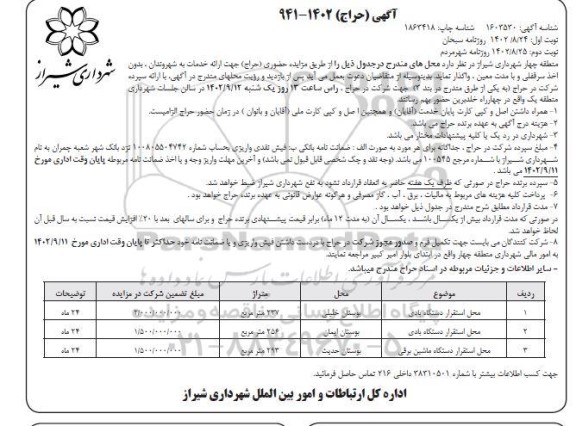 آگهی (حراج) ۱۴۰۲-۹۴۱
شناسه آگهی: ۱۶۰۳۵۳۰ شناسه چاپ: ۱۸۶۳۴۱۸
نوبت اول: ۱۴۰۲/۸/۲۴ روزنامه سبحان
نوبت دوم: ۱۴۰۲/۸/۲۵ روزنامه شهرمردم
شهرداری شیراز
منطقه چهار شهرداری شیراز در نظر دارد محل های مندرج درجدول ذیل را از طریق مزایده حضوری (حراج) جهت ارائه خدمات به شهروندان . بدون
اخذ سرقفلی و با مدت معین ، واگذار نماید. بدینوسیله از متقاضیان دعوت بعمل می آید پس از بازدید و رویت محلهای مندرج در آگهی، با ارائه سپرده
شرکت در حراج (به یکی از طرق مندرج در بند ۴) جهت شرکت در حراج ، راس ساعت ۱۳ روز یک شنبه ۱۴۰۲/۹/۱۲ در سالن جلسات شهرداری
منطقه یک واقع در چهارراه خلدبرین حضور بهم رسانند.
۱- همراه داشتن اصل و کپی کارت پایان خدمت (آقایان) و همچنین اصل و کپی کارت ملی (آقایان و بانوان ) در زمان حضور حراج الزامیست.
۲- هزینه درج آگهی به عهده برنده حراج می باشد.
۳- شهرداری در رد یک یا کلیه پیشنهادات مختار می باشد.
۴- مبلغ سپرده شرکت در حراج ، جداگانه برای هر مورد به صورت الف : ضمانت نامه بانکی ب: فیش نقدی واریزی بحساب شماره ۱۰۰۸۰۵۵۰۴۷۴۲ نزد بانک شهر شعبه چمران به نام
شهرداری شیراز با شماره مرجع ۱۰۰۵۴۵ می باشد. (وجه نقد و چک شخصی قابل قبول نمی باشد) و آخرین مهلت واریز وجه و یا اخذ ضمانت نامه مربوطه پایان وقت اداری مورخ
۱۴۰۲/۹/۱۱ می باشد .
۵- سپرده برنده حراج در صورتی که ظرف یک هفته حاضر به انعقاد قرارداد نشود به نفع شهرداری شیراز ضبط خواهد شد.
۶- پرداخت کلیه هزینه های مربوط به مالیات ، برق ، آب ، گاز مصرفی و هرگونه عوارض قانونی به عهده برنده حراج خواهد بود .
۷- مدت قرارداد مطابق شرح مندرج در جدول ذیل خواهد بود .
در صورتی که مدت قرارداد بیش از یکسال باشد ، یکسال آن (به مدت ۱۲ ماه) برابر قیمت پیشنهادی برنده حراج و برای سالهای بعد با ۲۰٪ افزایش قیمت نسبت به سال قبل آن
لحاظ خواهد شد.
۸- شرکت کنندگان می بایست جهت تکمیل فرم و صدور مجوز شرکت در حراج با در دست داشتن فیش واریزی و یا ضمانت نامه خود حداکثر تا پایان وقت اداری مورخ ۱۴۰۲/۹/۱۱
به امور مالی شهرداری منطقه چهار واقع در ابتدای بلوار امیر کبیر مراجعه نمایند.
- سایر اطلاعات و جزئیات مربوطه در اسناد حراج مندرج میباشد.
ردیف موضوع محل متراژ مبلغ تضمین شرکت در مزایده توضیحات
۱ محل استقرار دستگاه بادی بوستان خلیلی ۲۳۷ متر مربع ۲۴ ماه
۲ محل استقرار دستگاه بادی بوستان ایمان ۲۵۴ متر مربع ۱/۵۰۰/۰۰۰/۰۰۰ ۲۴ ماه
۳ محل استقرار دستگاه ماشین برقی بوستان حدیث ۲۹۳ متر مربع ۱/۵۰۰/۰۰۰/۰۰۰ ۲۴ ماه
جهت کسب اطلاعات بیشتر با شماره ۳۸۳۱۰۵۰۱ داخلی ۲۱۶ تماس حاصل فرمائید.
اداره کل ارتباطات و امور بین الملل شهرداری شیراز
ParsNamadData
۰۲۱-۸۸۳۴۹۶۷۰-۵